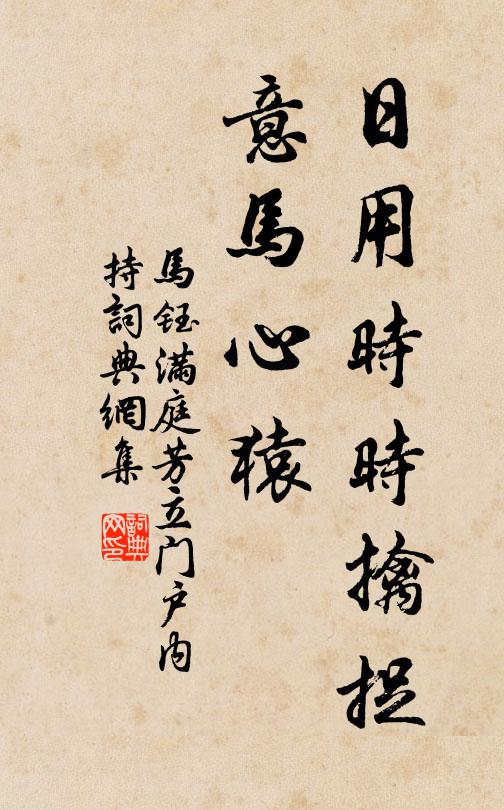 日用時時擒捉
意馬心猿
馬鈺滿庭芳立门户内
持詞典網集
詞典网印